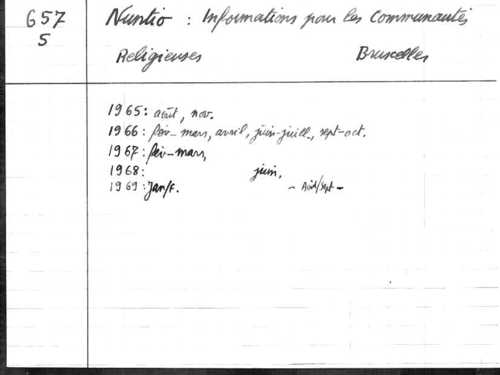 657 Nuntio : Informations pour les Communautés
5
Religieuses Bruxelles
1965: août, nov.
1966: fév-mars, avril, juin-juill., sept-oct.
1967: fév-mars,
1968: juin,
1969: Jan/f. - Août/sept -